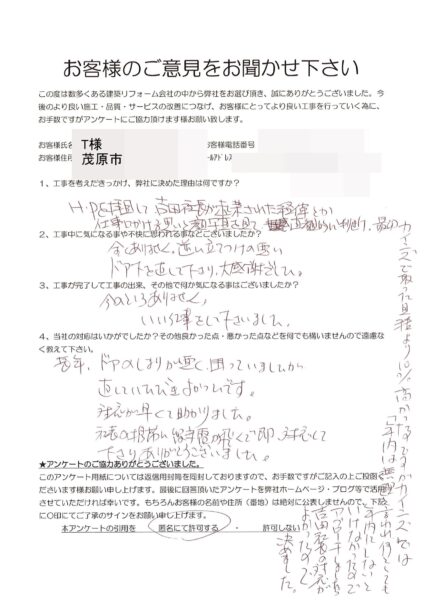 お客様のご意見をお聞かせ下さい
この度は数多くある建築リフォーム会社の中から弊社をお選び頂き、誠にありがとうございました。今
後のより良い施工・品質・サービスの改善につなげ、お客様にとってより良い工事を行っていく為に、
お手数ですがアンケートにご協力頂けます様お願い致します。
お客様氏名 T様 お客様電話番号
お客様住所 茂原市 ールアドレス
1、工事を考えだきっかけ、弊社に決めた理由は何ですか?
H.Pを拝見して吉田社長が
仕事にかける思いと
2、工事中に気になる事や不快に思われる事などございましたか?
全くありません。逆に立てつけの悪い
ドアを直して下さり、大感謝でした。
3、工事が完了して工事の出来、その他で何か気になる事はございましたか?
今のところありません。
いい仕事をして下さいました。
4、当社の対応はいかがでしたか?その他良かった点・悪かった点などを何でも構いませんので遠慮な
く教えて下さい。
長年、ドアのしまりが悪く、困っていましたから
直していただきよかったです。
対応が早くて助かりました。
社長の携帯に留守電の
下さりありがとうございました。
カインズで取った見積より10%高かった
カインズでは
「年内は無理」
年内にしないと
いけなかったので
吉田社長の対応が
よかったので
決めました。
★アンケートのご協力ありがとうございました。
このアンケート用紙については返信用封筒を同封しておりますので、お手数ですがご記入の上ご投函く
ださいます様お願い申し上げます。最後に回答頂いたアンケートを弊社ホームページ・ブログ等で活用
させていただければ幸いです。もちろんお客様のお名前や住所(番地)は絶対に公表しませんので、下
記にO印にてご了承のサインをお願い申し上げます。
本アンケートの引用を 匿名にて許可する ・ 許可しない